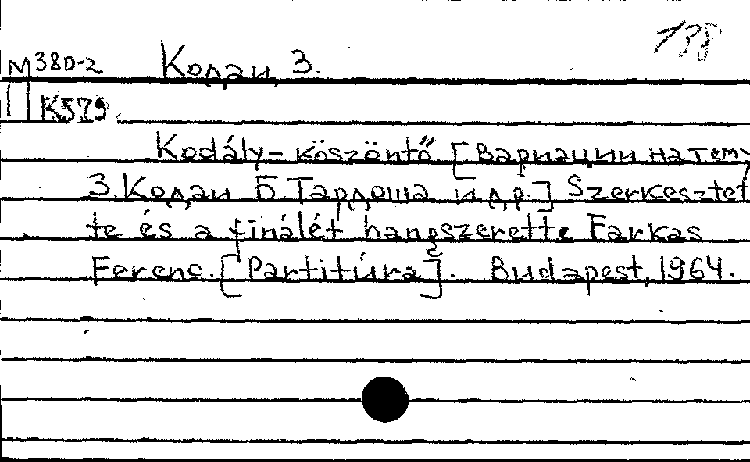 138
М380-2 Кодаи, З.
К579.
Kodály-köszöntő [Вариации на тему
З. Кодаи Б. Тардоша и др.] Szerkesztet
te és a finálét hangszerette Farkas
Ferenc. [Partitúra]. Budapest, 1964.